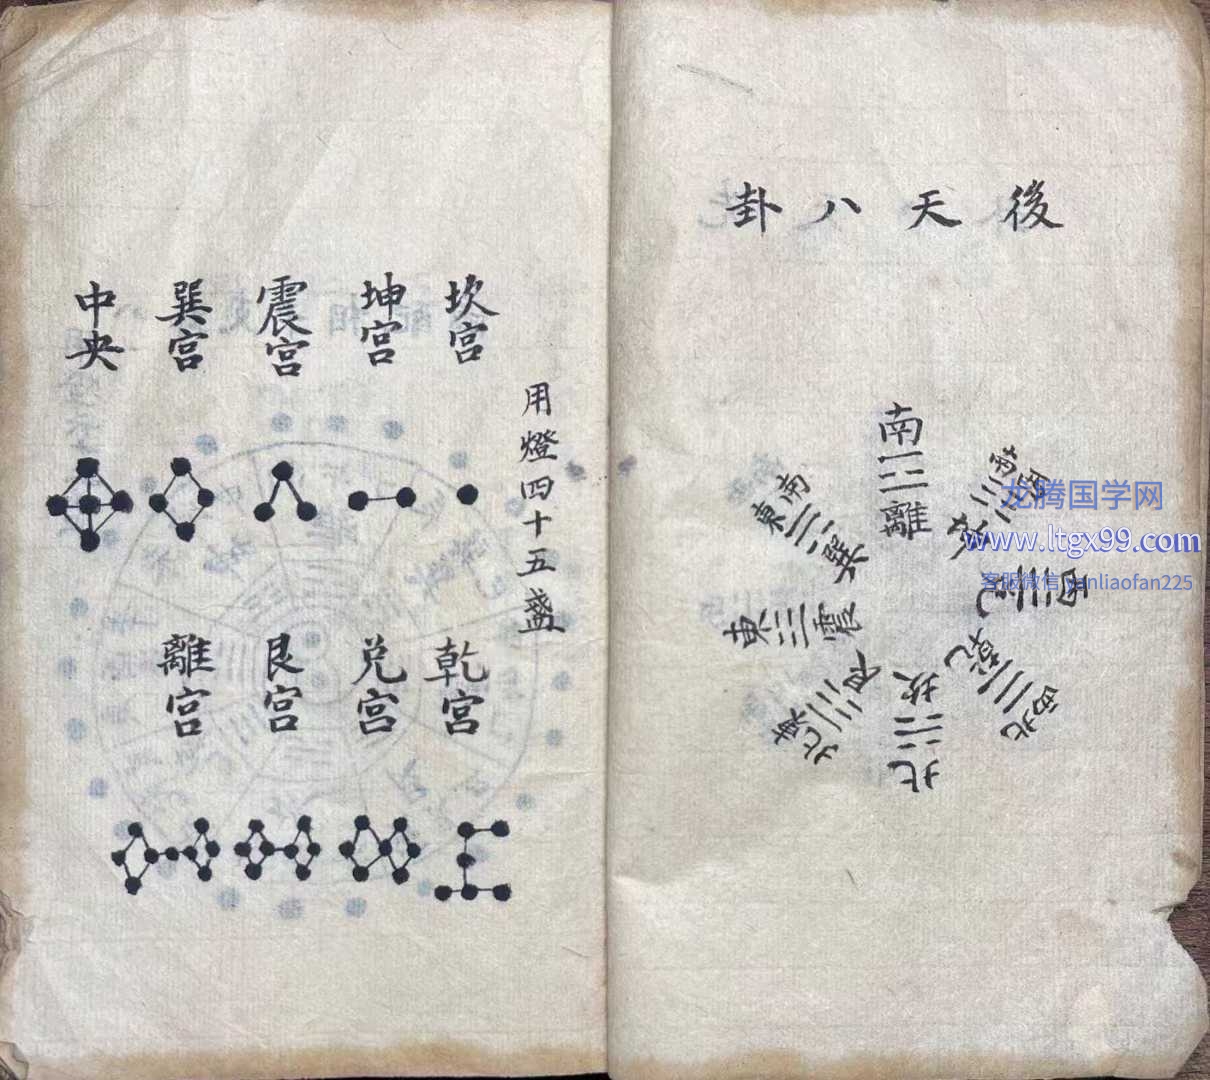 後天八卦
南
離
西南
坤
西
兌
西北
乾
北
坎
東北
艮
東
震
東南
巽
龙腾国学网
www.ltgx99.com
客服微信 yanliaofan225
用燈四十五盏
坎宫
坤宫
震宫
巽宫
中央
乾宫
兑宫
艮宫
離宫